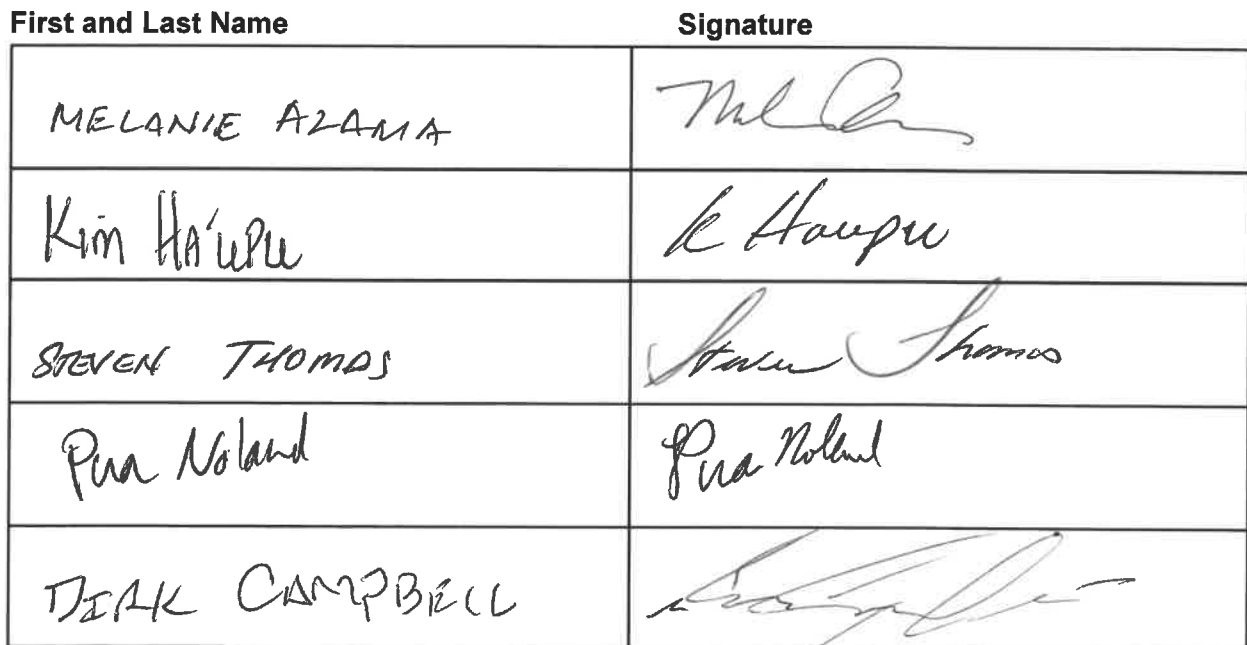 First and Last Name Signature
MELANIE AZAMA
Kim HA'UPU K Haupu
STEVEN THOMAS Steven Thomas
Pua Noland Pua Noland
DIRK CAMPBELL